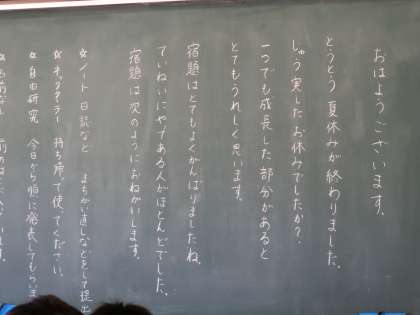 おはようございます。
とうとう夏休みが終わりました。
じゅう実したお休みでしたか？
一つでも成長した部分があると
とてもうれしく思います。
宿題はとてもよくがんばりましたね。
ていねいにやってある人がほとんどでした。
宿題は次のようにおねがいします。
☆ノート 日誌など まちがい直しなどをして提出
☆ 持ち帰って使ってください。
☆自由研究 今日から順に発表してもらいま